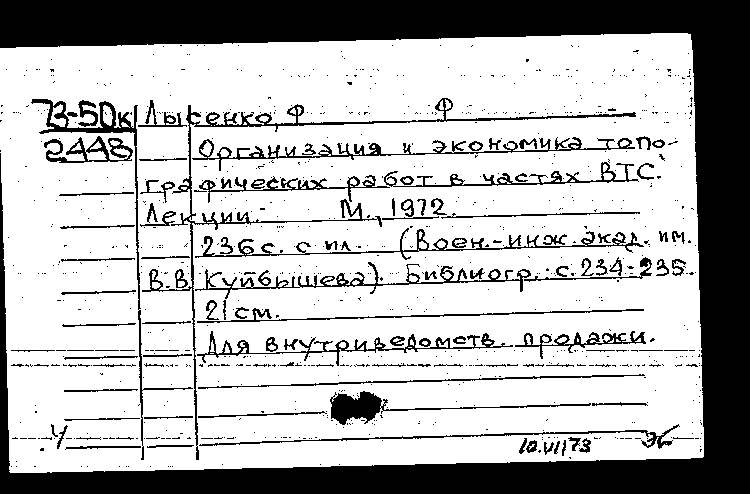 73-50к Лысенко, Ф Ф
2448 Организация и экономика топо-
графических работ в частях ВТС.
Лекции. М., 1972.
236 с. с ил. (Воен.-инж. акад. им.
В.В. Куйбышева). Библиогр.: с. 234-235.
21 см.
Для внутриведомств. продажи.
Ч
10.VI.73